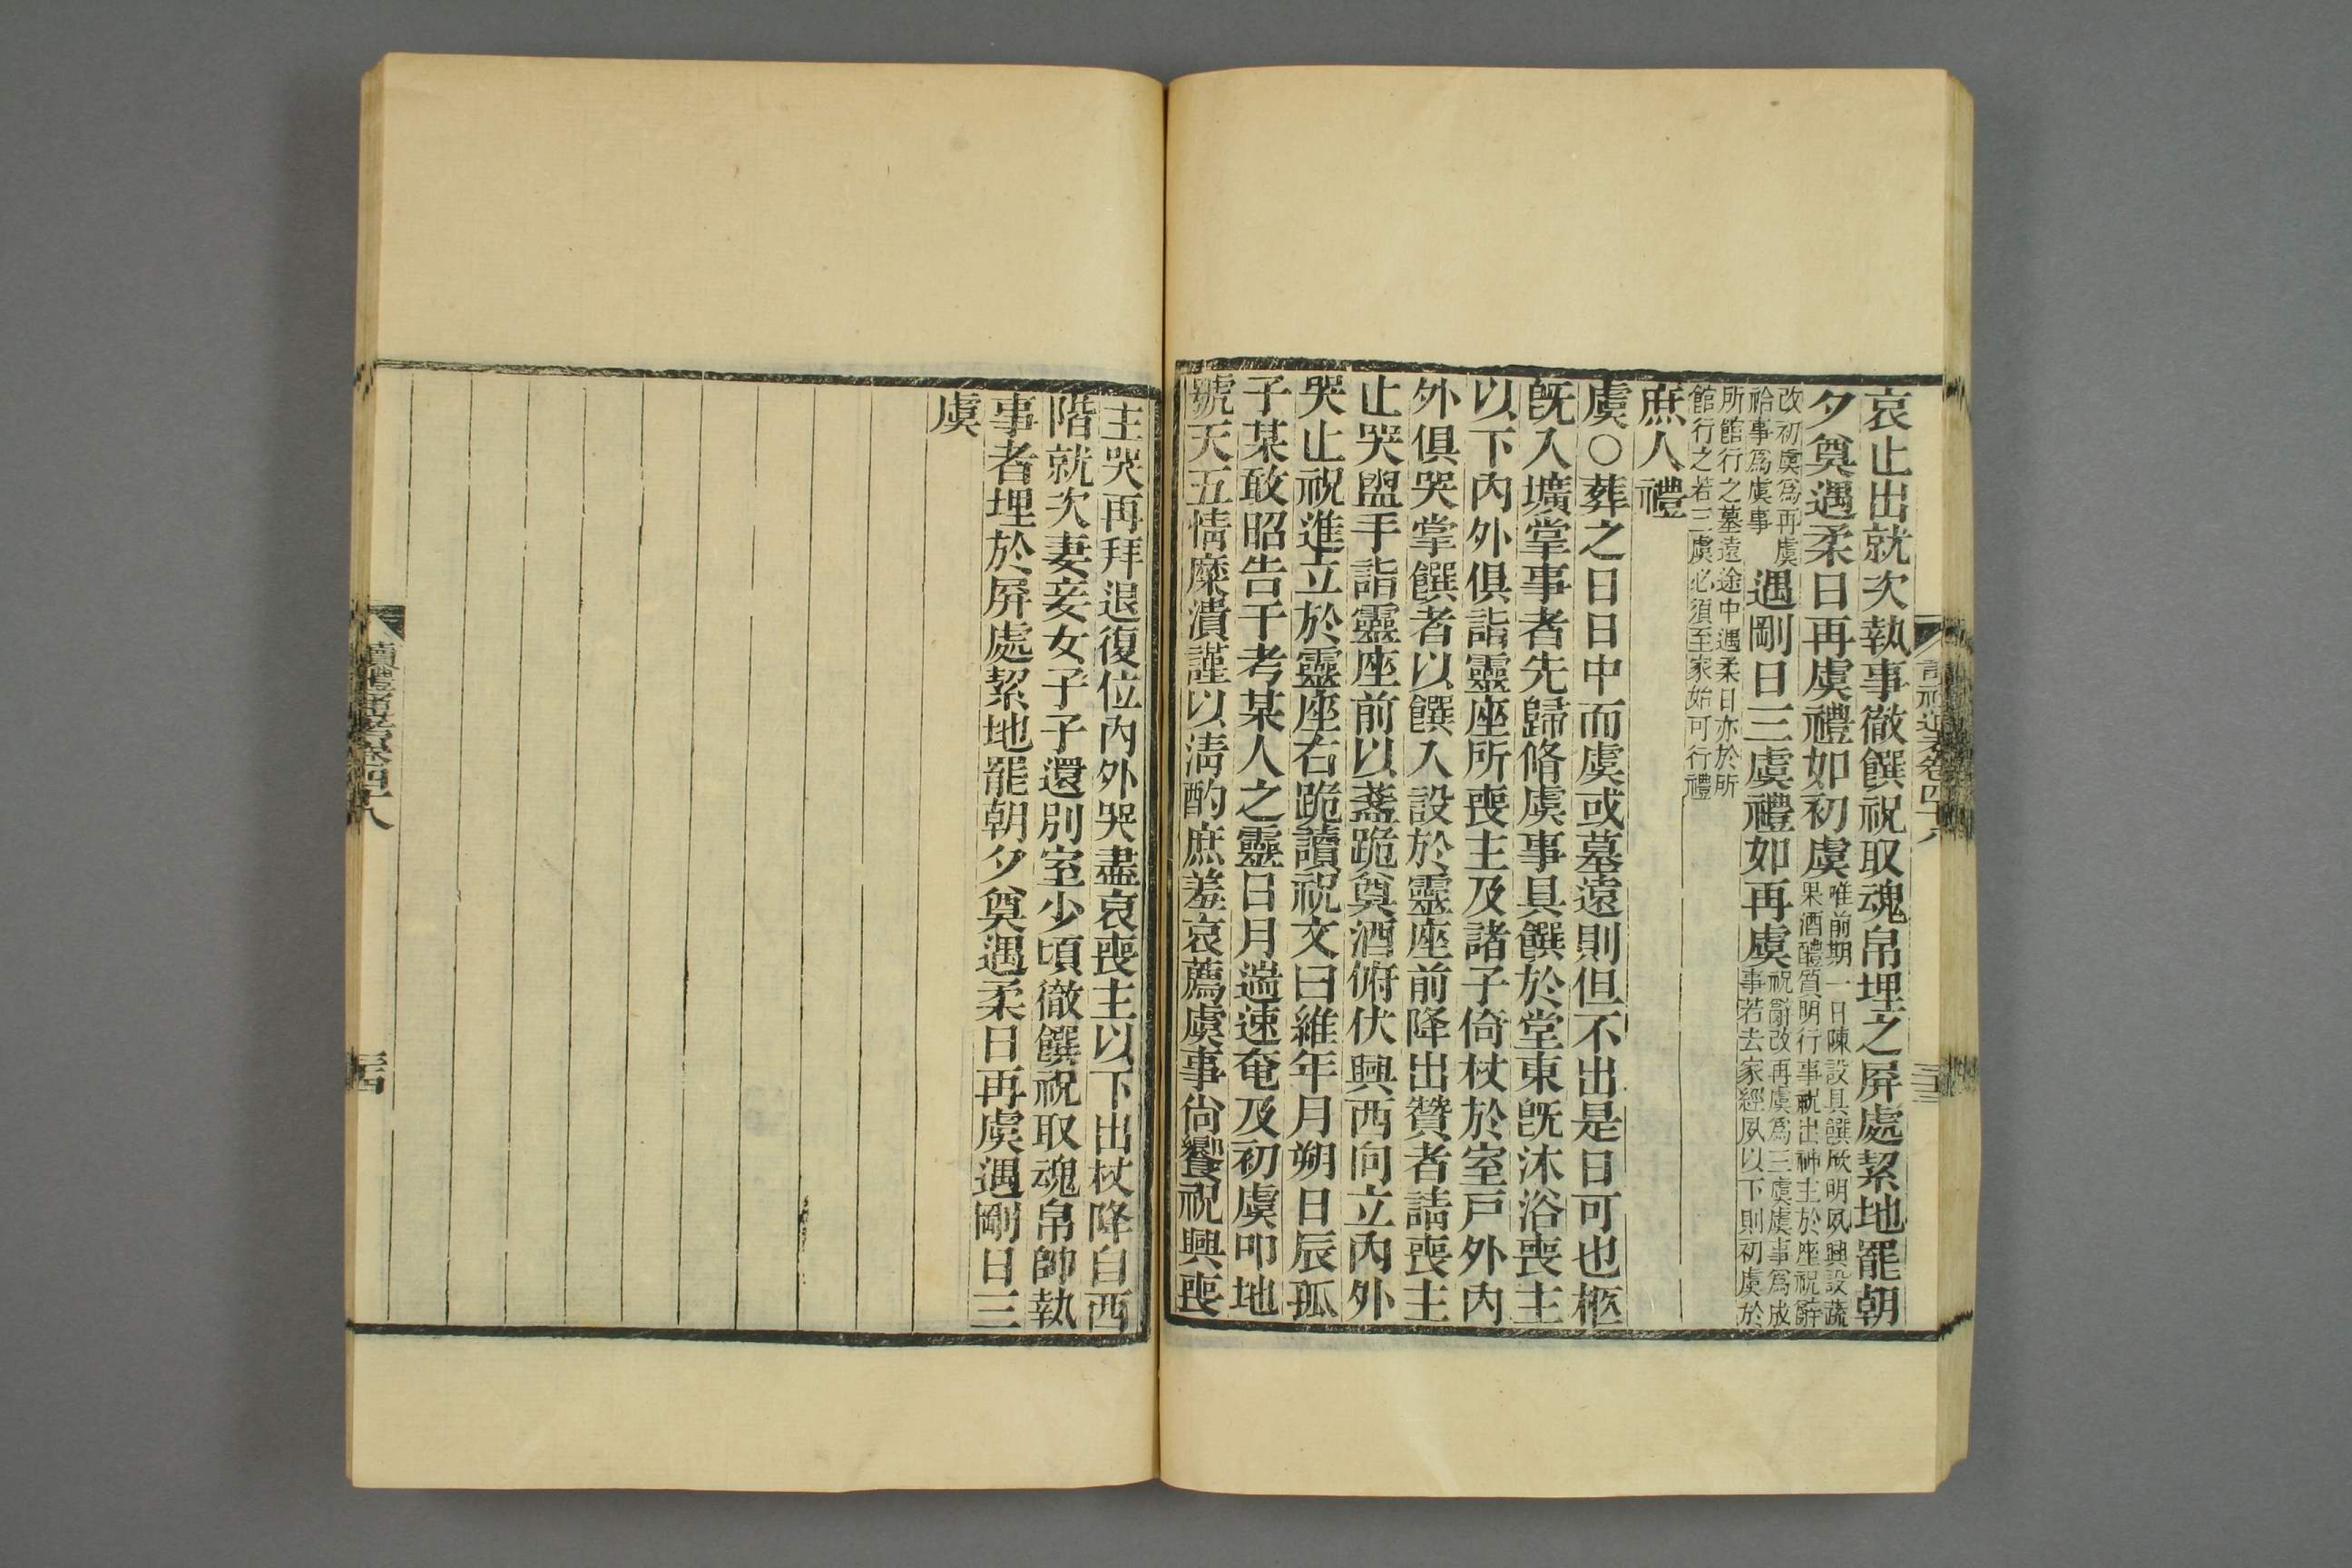 哀止出就次執事徹饌祝取魂帛埋之屏處絜地罷朝
夕奠遇柔日再虞禮如初虞唯前期一日陳設具饌厥明夙興設蔬
果酒醴質明行事祝出神主於座祝辭
改初虞爲再虞
祫事爲虞事遇剛日三虞禮如再虞祝辭改再虞爲三虞虞事爲成
事若去家經夙以下則初虞於
所館行之墓遠途中遇柔日亦於所
館行之若三虞必須至家始可行禮
庶人禮
虞○葬之日日中而虞或墓遠則但不出是日可也柩
旣入壙掌事者先歸脩虞事具饌於堂東旣沐浴喪主
以下內外俱詣靈座所喪主及諸子倚杖於室戶外內
外俱哭掌饌者以饌入設於靈座前降出贊者請喪主
止哭盥手詣靈座前以盞跪奠酒俯伏興西向立內外
哭止祝進立於靈座右跪讀祝文曰維年月朔日辰孤
子某敢昭告于考某人之靈日月遄速奄及初虞叩地
號天五情糜潰謹以淸酌庶羞哀薦虞事尙饗祝興喪
主哭再拜退復位內外哭盡哀喪主以下出杖降自西
階就次妻妾女子子還別室少頃徹饌祝取魂帛帥執
事者埋於屏處絜地罷朝夕奠遇柔日再虞遇剛日三
虞
讀禮通考卷四十八
三十四